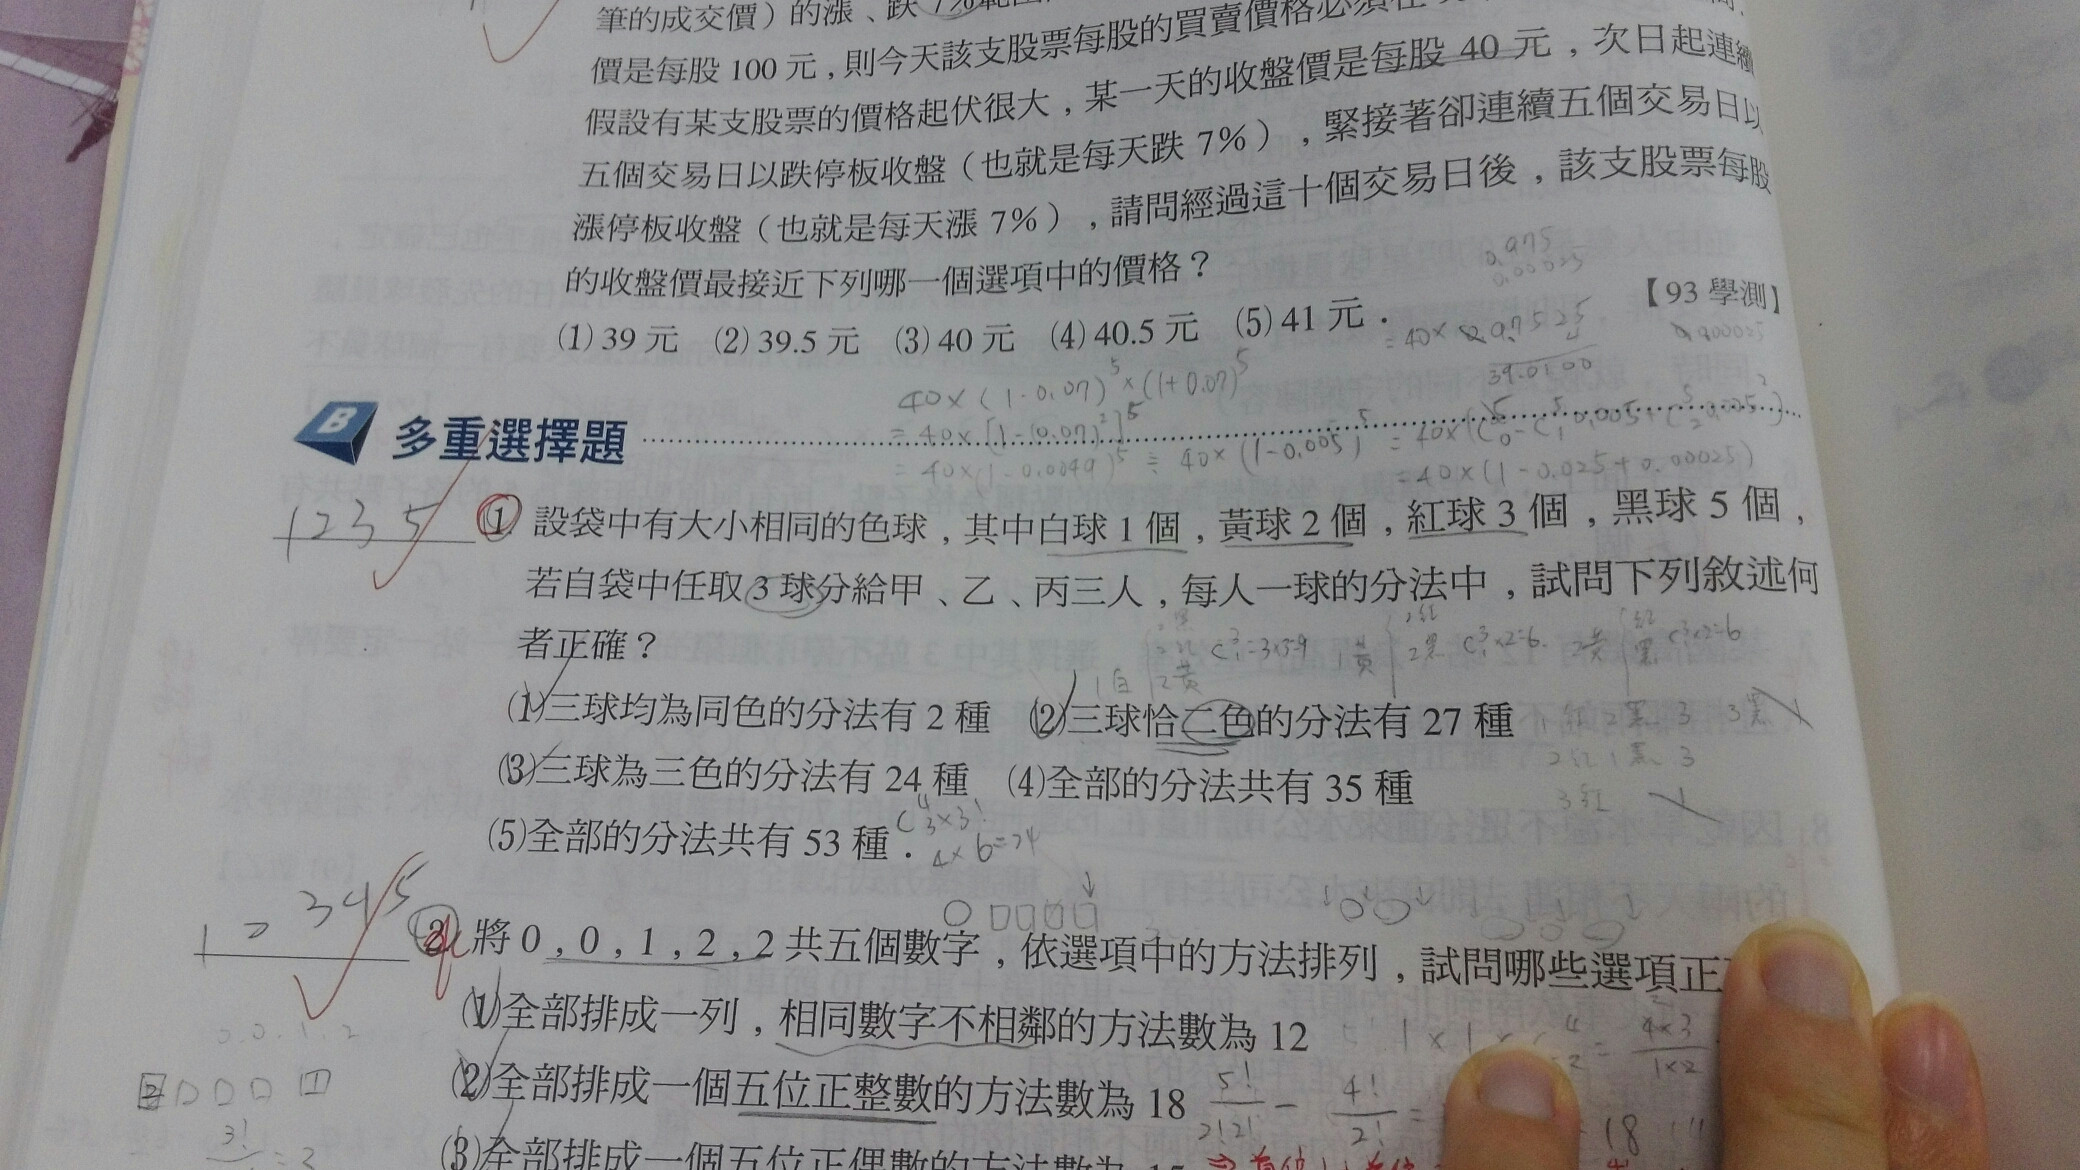 筆的成交價）的漲、跌 7%範圍
價是每股 100 元，則今天該支股票每股的買賣價格必須在
假設有某支股票的價格起伏很大，某一天的收盤價是每股 40 元，次日起連續
五個交易日以跌停板收盤（也就是每天跌 7%），緊接著卻連續五個交易日以
漲停板收盤（也就是每天漲 7%），請問經過這十個交易日後，該支股票每股
的收盤價最接近下列哪一個選項中的價格？
【93 學測】
(1) 39 元 (2) 39.5 元 (3) 40 元 (4) 40.5 元 (5) 41 元．
39.0100
40×(1-0.07)^5×(1+0.07)^5
B 多重選擇題
= 40×[1-(0.07)^2]^5
= 40×(1-0.0049)^5 ≒ 40×(1-0.005)^5
= 40×(1-0.025+0.00025)
1235
1. 設袋中有大小相同的色球，其中白球 1 個，黃球 2 個，紅球 3 個，黑球 5 個，
若自袋中任取 3 球分給甲、乙、丙三人，每人一球的分法中，試問下列敘述何
者正確？
(1)三球均為同色的分法有 2 種 (2)三球恰二色的分法有 27 種
(3)三球為三色的分法有 24 種 (4)全部的分法共有 35 種
(5)全部的分法共有 53 種．
4×6=24
12345
2. 將 0，0，1，2，2 共五個數字，依選項中的方法排列，試問哪些選項正
(1)全部排成一列，相同數字不相鄰的方法數為 12
(2)全部排成一個五位正整數的方法數為 18
5!/2!2! - 4!/2! =
18
(3)全部排成一個五位正偶數的方法數為